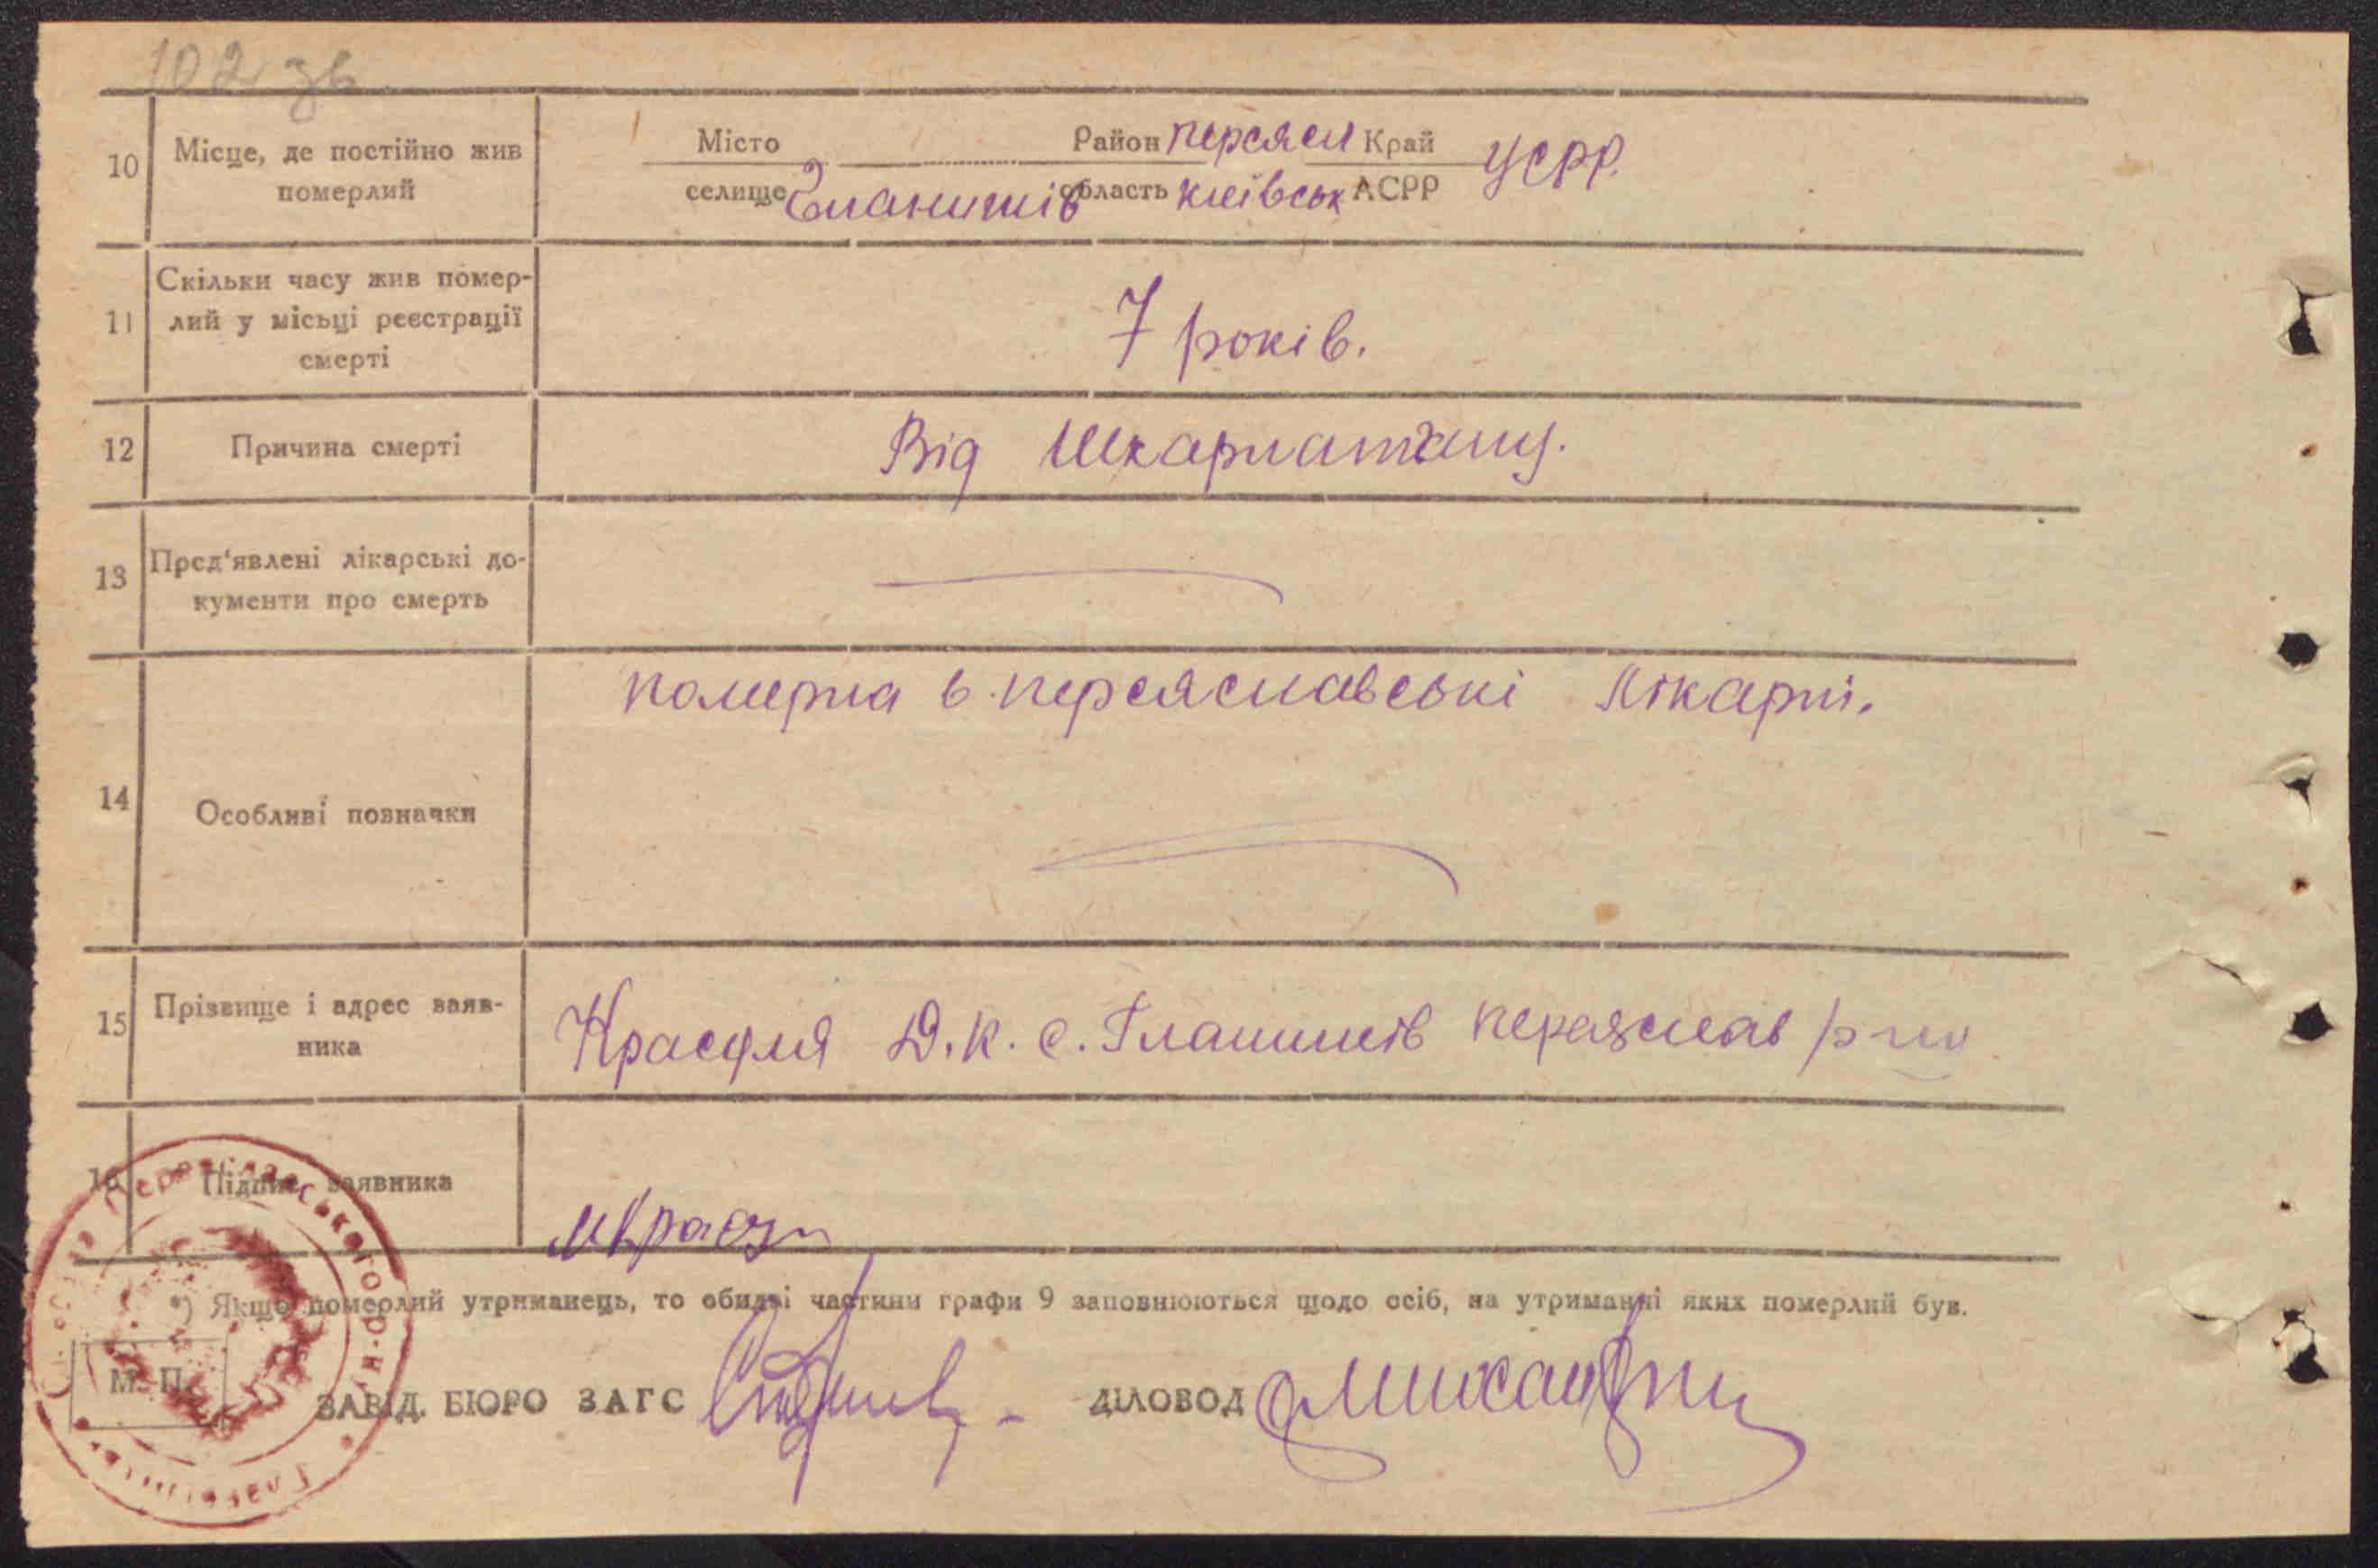 102 зв
10 Місце, де постійно жив померлий
Місто Район переясл Край УСРР.
селище Гланишів область київськ АСРР
11 Скільки часу жив помер-
лий у місьці реєстрації
смерті
7 років.
12 Причина смерті Від Шкарлатину.
13 Пред'явлені лікарські до-
кументи про смерть
14 Особливі позначки
померла в переяславські лікарні.
15 Прізвище і адрес заяв-
ника
Д. К. с. Гланишів переяслав р-ну
16 Підпис заявника
*) Якщо померлий утриманець, то обидві частини графи 9 заповнюються щодо осіб, на утриманні яких померлий був.
М. П.
ЗАВІД. БЮРО ЗАГС ДІЛОВОД
Переяславського р-н